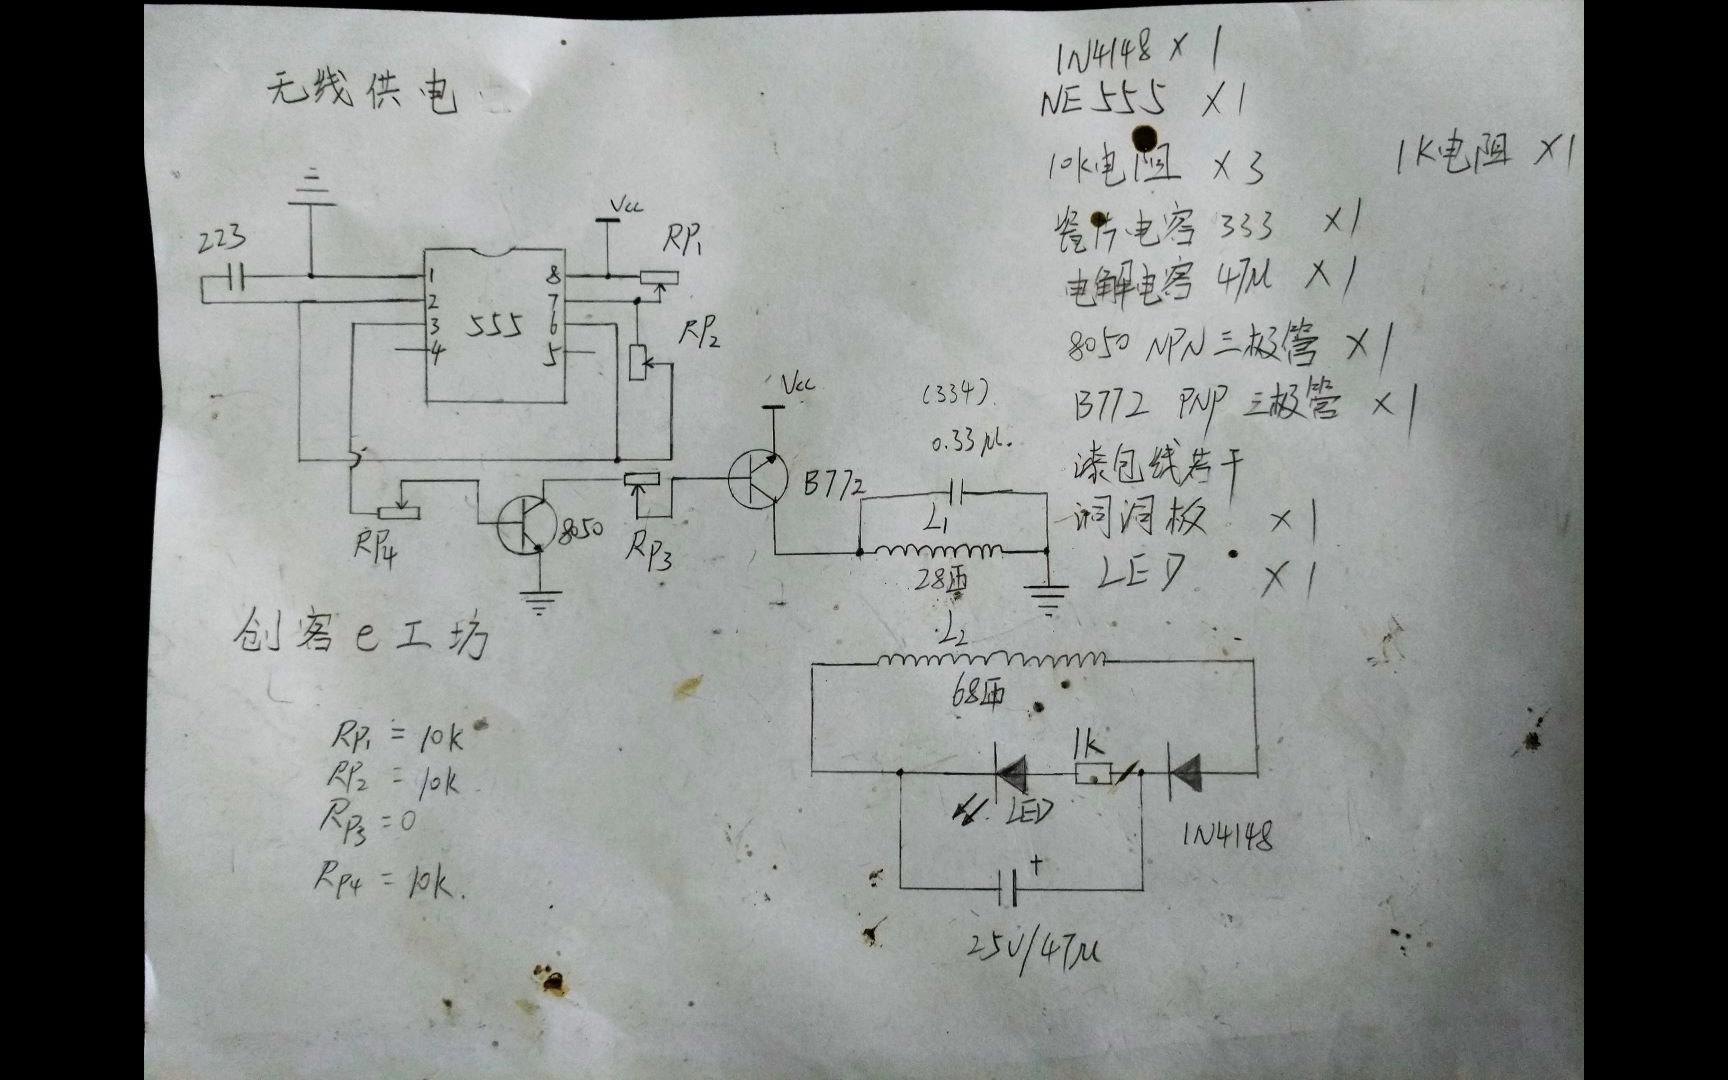 无线供电
1N4148 × 1
NE555 × 1
10k电阻 × 3
1K电阻 ×1
瓷片电容 333 ×1
电解电容 47μ ×1
8050 NPN 三极管 ×1
B772 PNP 三极管 ×1
漆包线若干
洞洞板 ×1
LED ×1
223
Vcc
RP1
1
2
3
4
555
8
7
6
5
RP2
RP4
8050
RP3
Vcc
B772
(334)
0.33μ.
L1
28匝
创客e工坊
L2
68匝
1k
LED
1N4148
+
25V/47μ
RP1 = 10k
RP2 = 10k
RP3 = 0
RP4 = 10k.